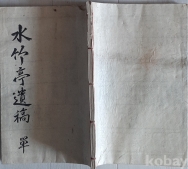 水竹亭遺稿 單
kobay